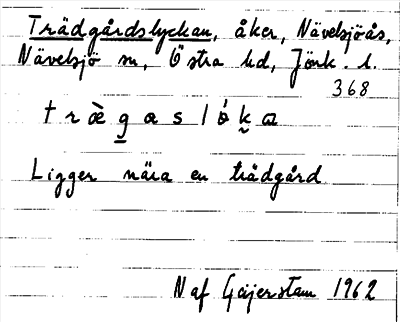 Trädgårdslyckan, åker, Nävelsjöås,
Nävelsjö sn, Östra hd, Jönk. l.
368
t r æ̀ g a s l ó k a
Ligger nära en trädgård
N af Geijerstam 1962